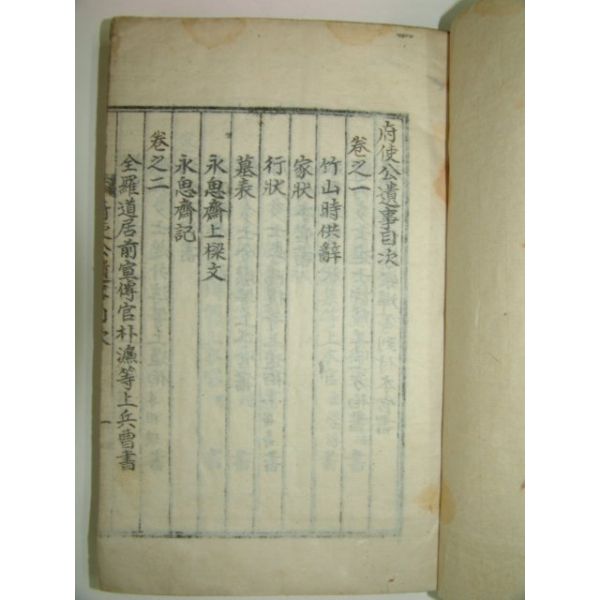 府使公遺事目次
卷之一
竹山時供辭
家狀
行狀
墓表
永思齋上樑文
永思齋記
卷之二
全羅道居前宣傳官朴瀌等上兵曹書
府使公遺事目次
一